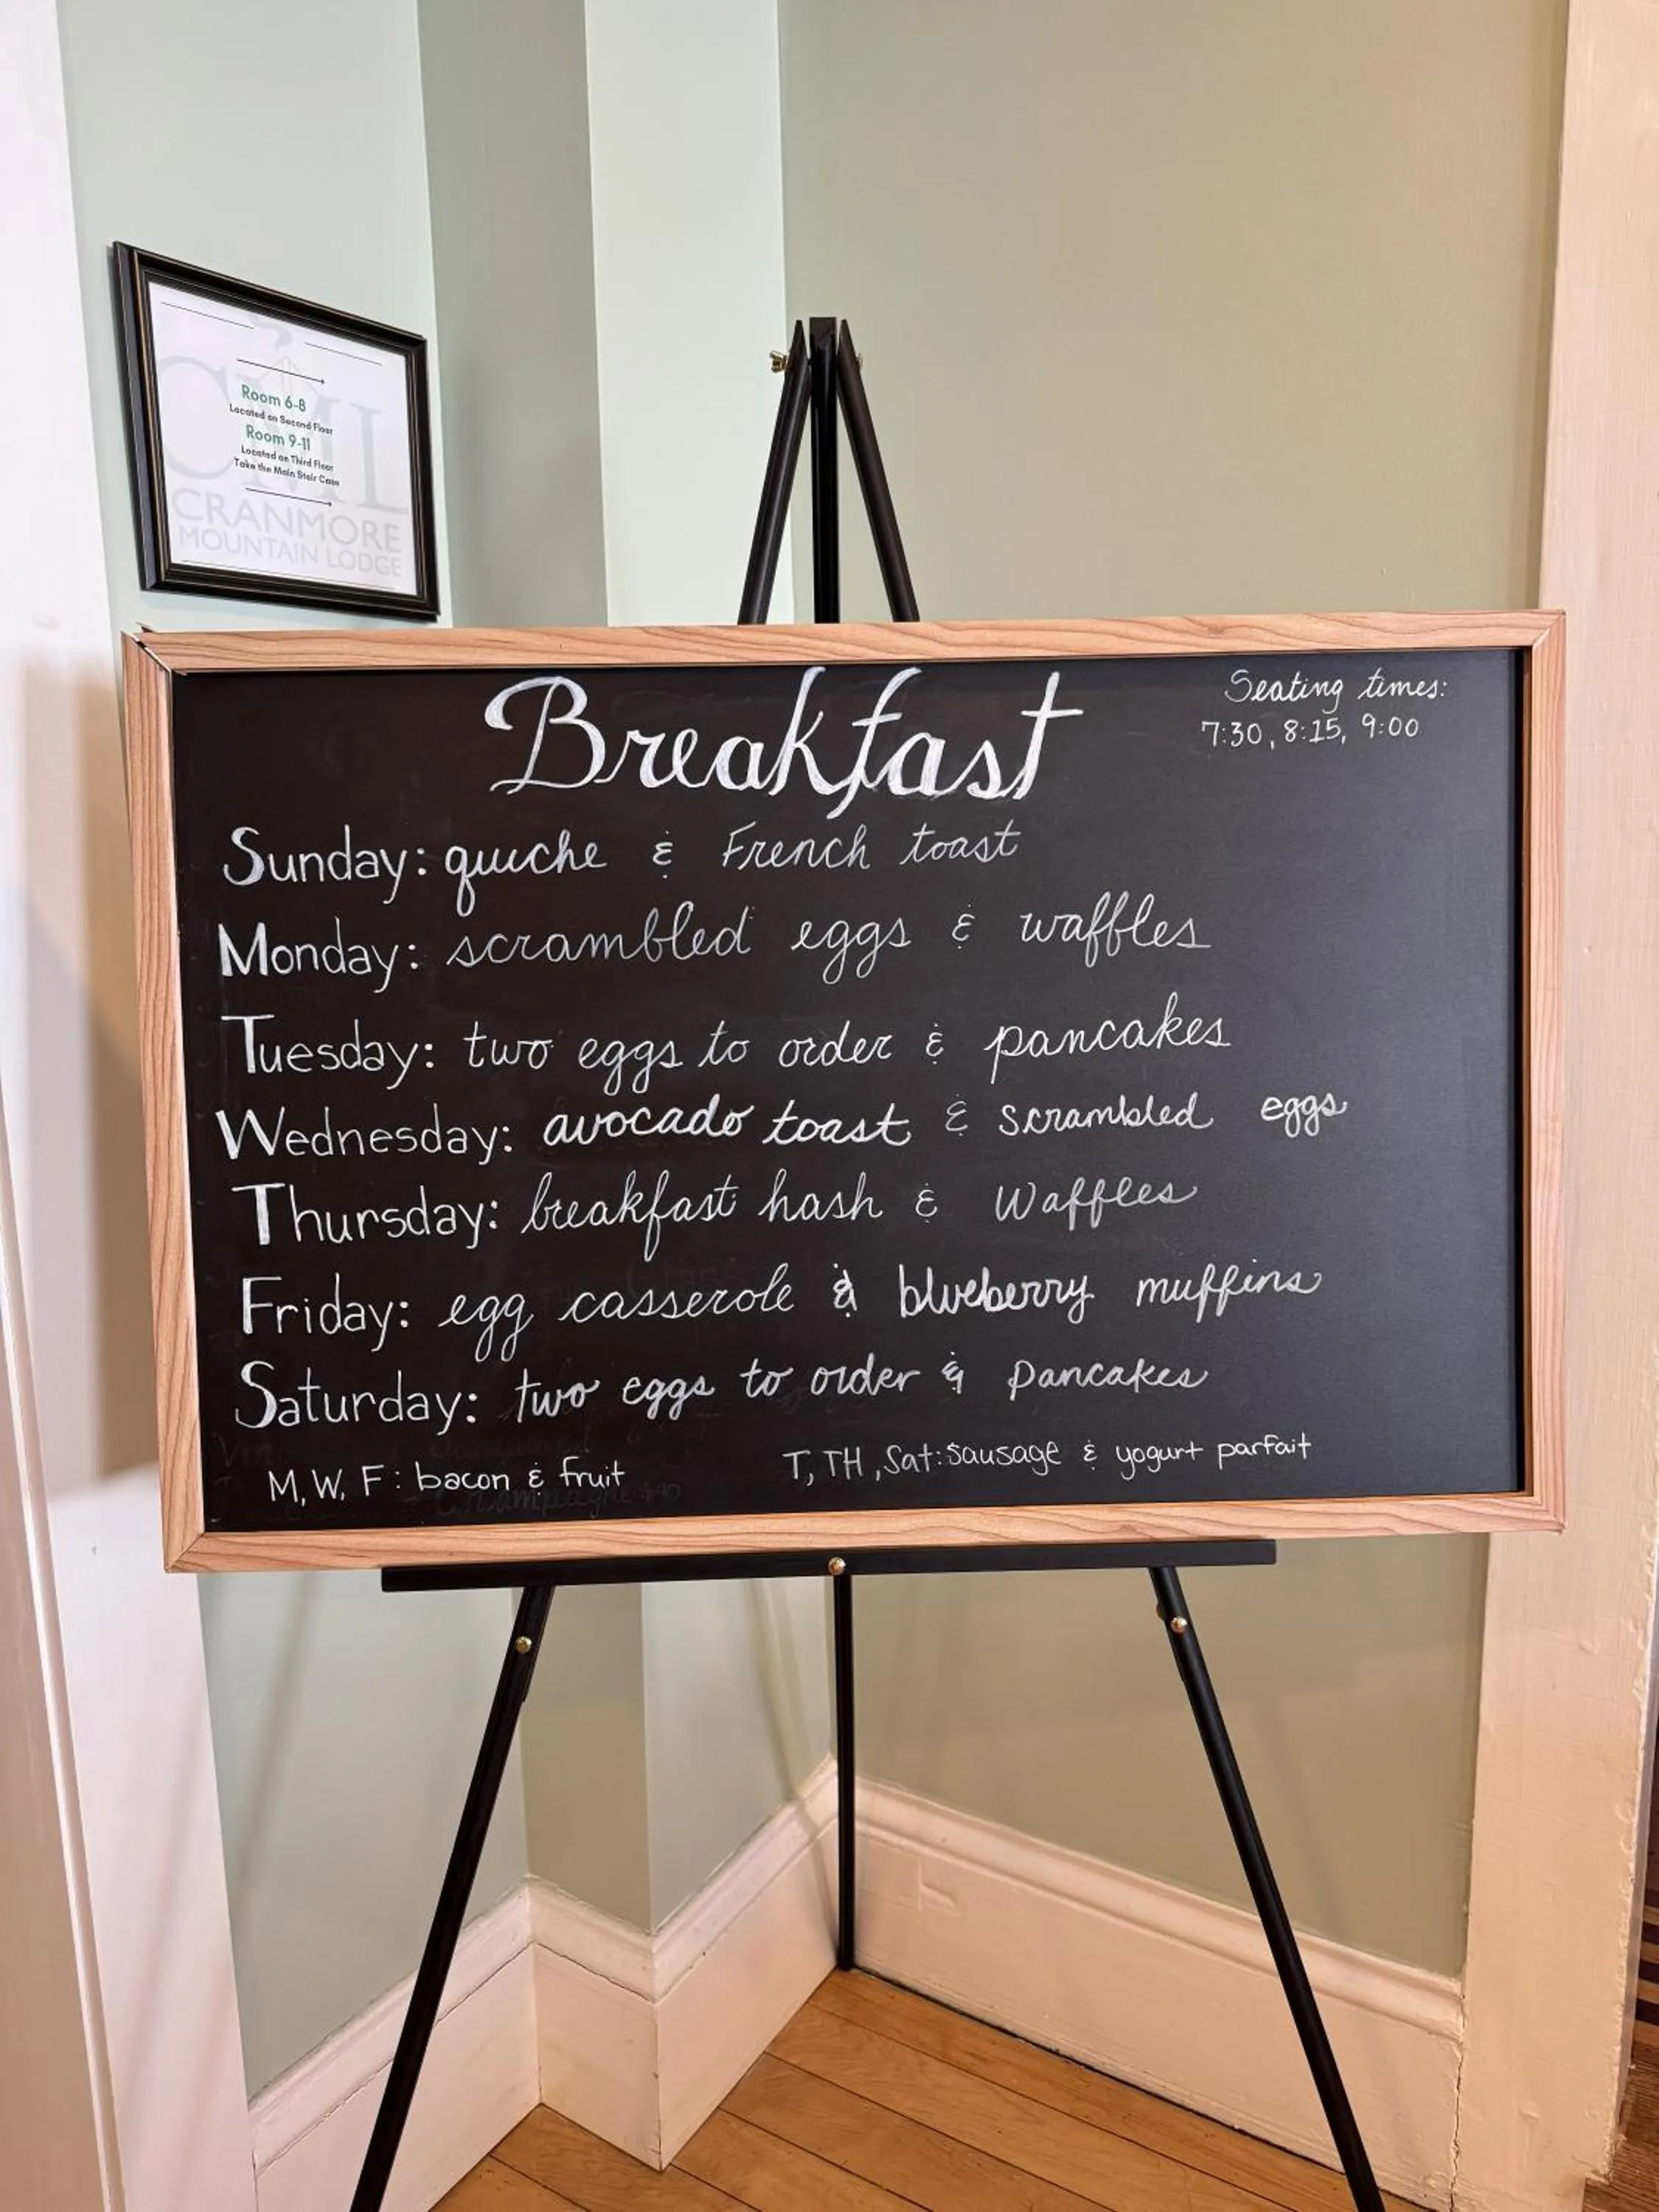 Room 6-8
Located on Second Floor
Room 9-11
Located on Third Floor
Take the Main Stair Case
CML
CRANMORE
MOUNTAIN LODGE
Breakfast
Seating times:
7:30, 8:15, 9:00
Sunday: quiche & French toast
Monday: scrambled eggs & waffles
Tuesday: two eggs to order & pancakes
Wednesday: avocado toast & scrambled eggs
Thursday: breakfast hash & Waffles
Friday: egg casserole & blueberry muffins
Saturday: two eggs to order & pancakes
M, W, F: bacon & fruit
T, TH, Sat: sausage & yogurt parfait